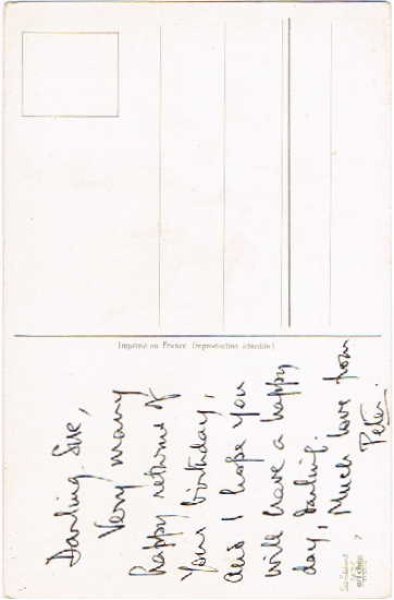 Darling Sue,
Very many
happy returns of
your birthday,
and I hope you
will have a happy
day, Darling.
Much love from
Peter.
Imprimé en France (reproduction interdite)